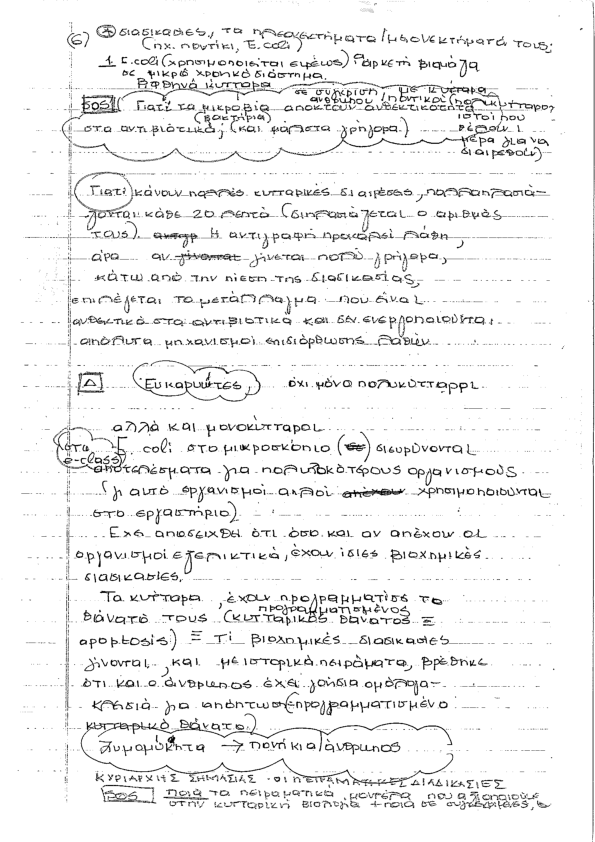 (6) * διαδικασίες, τα πλεονεκτήματα/μειονεκτήματά τους;
(πχ. ποντίκι, E.coli)
1 E.coli (χρησιμοποιείται ευρέως) αρκετή βιομάζα
σε μικρό χρονικό διάστημα.
Φθηνά κύτταρα
σε σύγκριση με κύτταρα
ανθρώπου/ποντικού (πολυκύτταρος
SOS! Γιατί τα μικρόβια αποκτούν ανθεκτικότητα
(βακτήρια)
ιστοί που
στα αντιβιοτικά; (και μάλιστα γρήγορα.)
θέλουν 1
μέρα για να
διαιρεθούν)
Γιατί κάνουν πολλές κυτταρικές διαιρέσεις, πολλαπλασιά-
ζονται κάθε 20 λεπτά (διπλασιάζεται ο αριθμός
τους). Η αντιγραφή προκαλεί λάθη,
άρα αν γίνεται γίνεται πολύ γρήγορα,
κάτω από την πίεση της διαδικασίας,
επιλέγεται το μετάλλαγμα που είναι
ανθεκτικό στα αντιβιοτικά και δεν ενεργοποιούνται
απόλυτα μηχανισμοί επιδιόρθωσης λαθών
Δ Ευκαρυώτες, όχι μόνο πολυκύτταροι
αλλά και μονοκύτταροι
(στο e-class) E. coli στο μικροσκόπιο διευρύνονται
αποτελέσματα για πολυπλοκότερους οργανισμούς
(γι αυτό οργανισμοί απλοί απέχουν χρησιμοποιούνται
στο εργαστήριο)
Έχει αποδειχθεί ότι όσο και αν απέχουν οι
οργανισμοί εξελικτικά, έχουν ίδιες βιοχημικές
διαδικασίες.
Τα κύτταρα, έχουν προγραμματίσει το
προγραμματισμένος
θάνατό τους (κυτταρικός θάνατος Ξ
apoptosis) Ξ Τί βιοχημικές διαδικασίες
γίνονται, και με ιστορικά πειράματα, βρέθηκε
ότι και ο άνθρωπος έχει γονίδια ομόλογα-
κλειδιά για απόπτωση (προγραμματισμένο
κυτταρικό θάνατο.)
Ζυμομύκητα → ποντίκια/άνθρωπος
ΚΥΡΙΑΡΧΗΣ ΣΗΜΑΣΙΑΣ · ΟΙ ΠΕΙΡΑΜΑΤΙΚΕΣ ΔΙΑΔΙΚΑΣΙΕΣ
SOS ποια τα πειραματικά μοντέλα που αξιοποιούμε
στην κυτταρική βιολογία + ποια σε συγκεκριμένες,